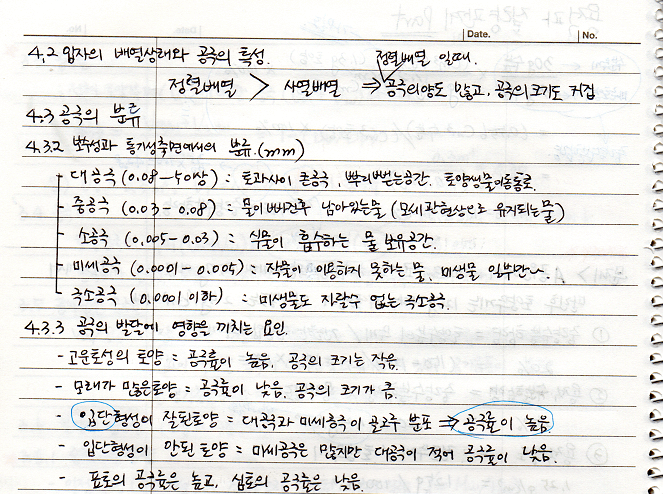 Date. No.
4.2 입자의 배열상태와 공극의 특성.
정렬배열 일때.
정렬배열 > 사열배열 ⇒ 공극의양도 많고, 공극의크기도 커짐
4.3 공극의 분류
4.3.2 보수성과 통기성측면에서의 분류.(mm)
대공극 (0.08-5이상) : 토괴사이 큰공극, 뿌리뻗는공간. 토양생물이동통로.
중공극 (0.03 - 0.08) : 물이빠진후 남아있는물 (모세관현상으로 유지되는물)
소공극 (0.005-0.03) : 식물이 흡수하는 물 보유공간.
미세공극 (0.0001 - 0.005) : 작물이 이용하지 못하는 물, 미생물 일부만~
극소공극 (0.0001 이하) : 미생물도 자랄수 없는 극소공극.
4.3.3 공극의 발달에 영향을 끼치는 요인.
- 고운토성의 토양 = 공극률이 높음, 공극의 크기는 작음.
- 모래가 많은토양 = 공극률이 낮음. 공극의 크기가 큼.
- 입단형성이 잘된토양 = 대공극과 미세공극이 골고루 분포 ⇒ 공극률이 높음
- 입단형성이 안된토양 = 미세공극은 많지만 대공극이 적어 공극률이 낮음.
- 표토의 공극률은 높고, 심토의 공극률은 낮음